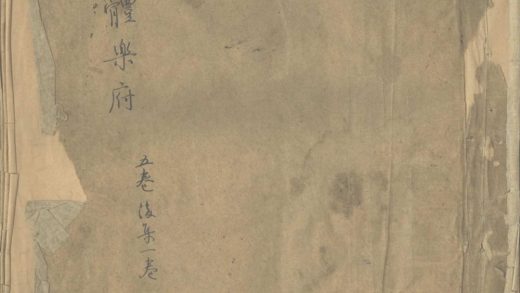 體樂府
五卷後集一卷